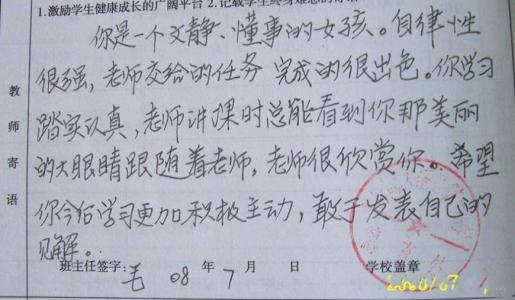 1.激励学生健康成长的广阔平台 2.记载学生终身难忘的
你是一个文静、懂事的女孩。自律性
很强,老师交给的任务完成的很出色。你学习
踏实认真,老师讲课时总能看到你那美丽
的大眼睛跟随着老师,老师很欣赏你。希望
你今后学习更加积极主动,敢于发表自己的
见解。
教师寄语
班主任签字: 毛 08 年 7 月 日 学校盖章